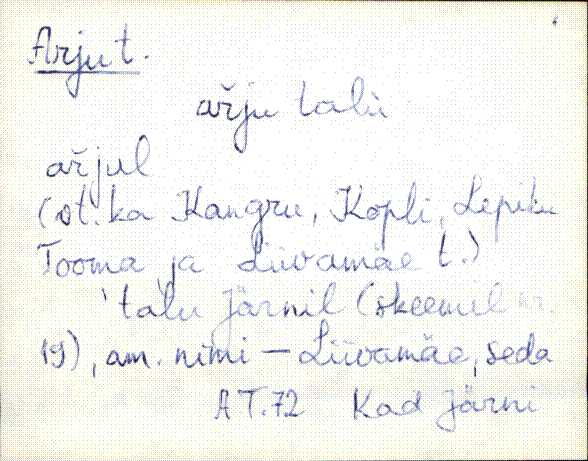 Arju t.
ařju talu
ařjul
(vt. ka Kangru, Kopli, Lepiku
Tooma ja Liivamäe t.)
'talu Järnil (skeemil nr.
19), am. nimi – Liivamäe, seda
AT.72 Kad Järni